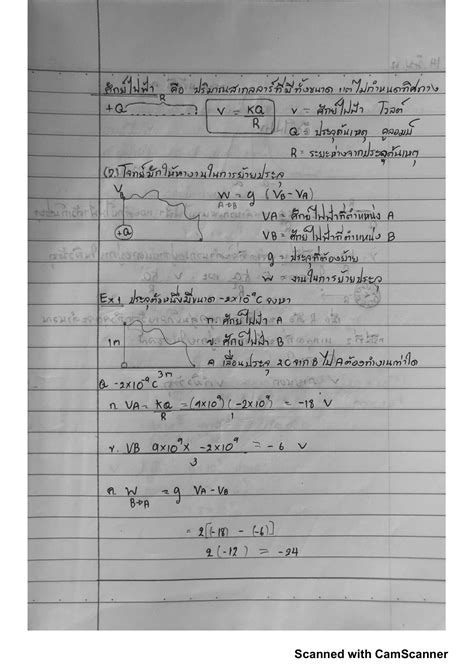 ศักย์ไฟฟ้า คือ ปริมาณสเกลลาร์ที่มีทั้งขนาด แต่ไม่กำหนดทิศทาง
+Q R V = KQ/R V = ศักย์ไฟฟ้า โวลต์
Q = ประจุต้นเหตุ คูลอมป์
R = ระยะห่างจากประจุต้นเหตุ
โจทย์มักให้หางานในการย้ายประจุ
V W = q (VB - VA)
A→B
VA = ศักย์ไฟฟ้าที่ตำแหน่ง A
+Q VB = ศักย์ไฟฟ้าที่ตำแหน่ง B
q = ประจุที่ต้องย้าย
W = งานในการย้ายประจุ
Ex 1 ประจุตัวหนึ่งมีขนาด -2x10⁻⁹C จงหา
ก. ศักย์ไฟฟ้า A
1m ข. ศักย์ไฟฟ้า B
ค. เลื่อนประจุ 2C จาก B ไป A ต้องทำงานเท่าใด
Q -2x10⁻⁹C 3m
ก. VA = KQ/R = (9x10⁹)(-2x10⁻⁹)/1 = -18 V
ข. VB 9x10⁹ x -2x10⁻⁹/3 = -6 V
ค. W = q VA - VB
B→A
= 2[(-18) - (-6)]
2(-12) = -24
Scanned with CamScanner